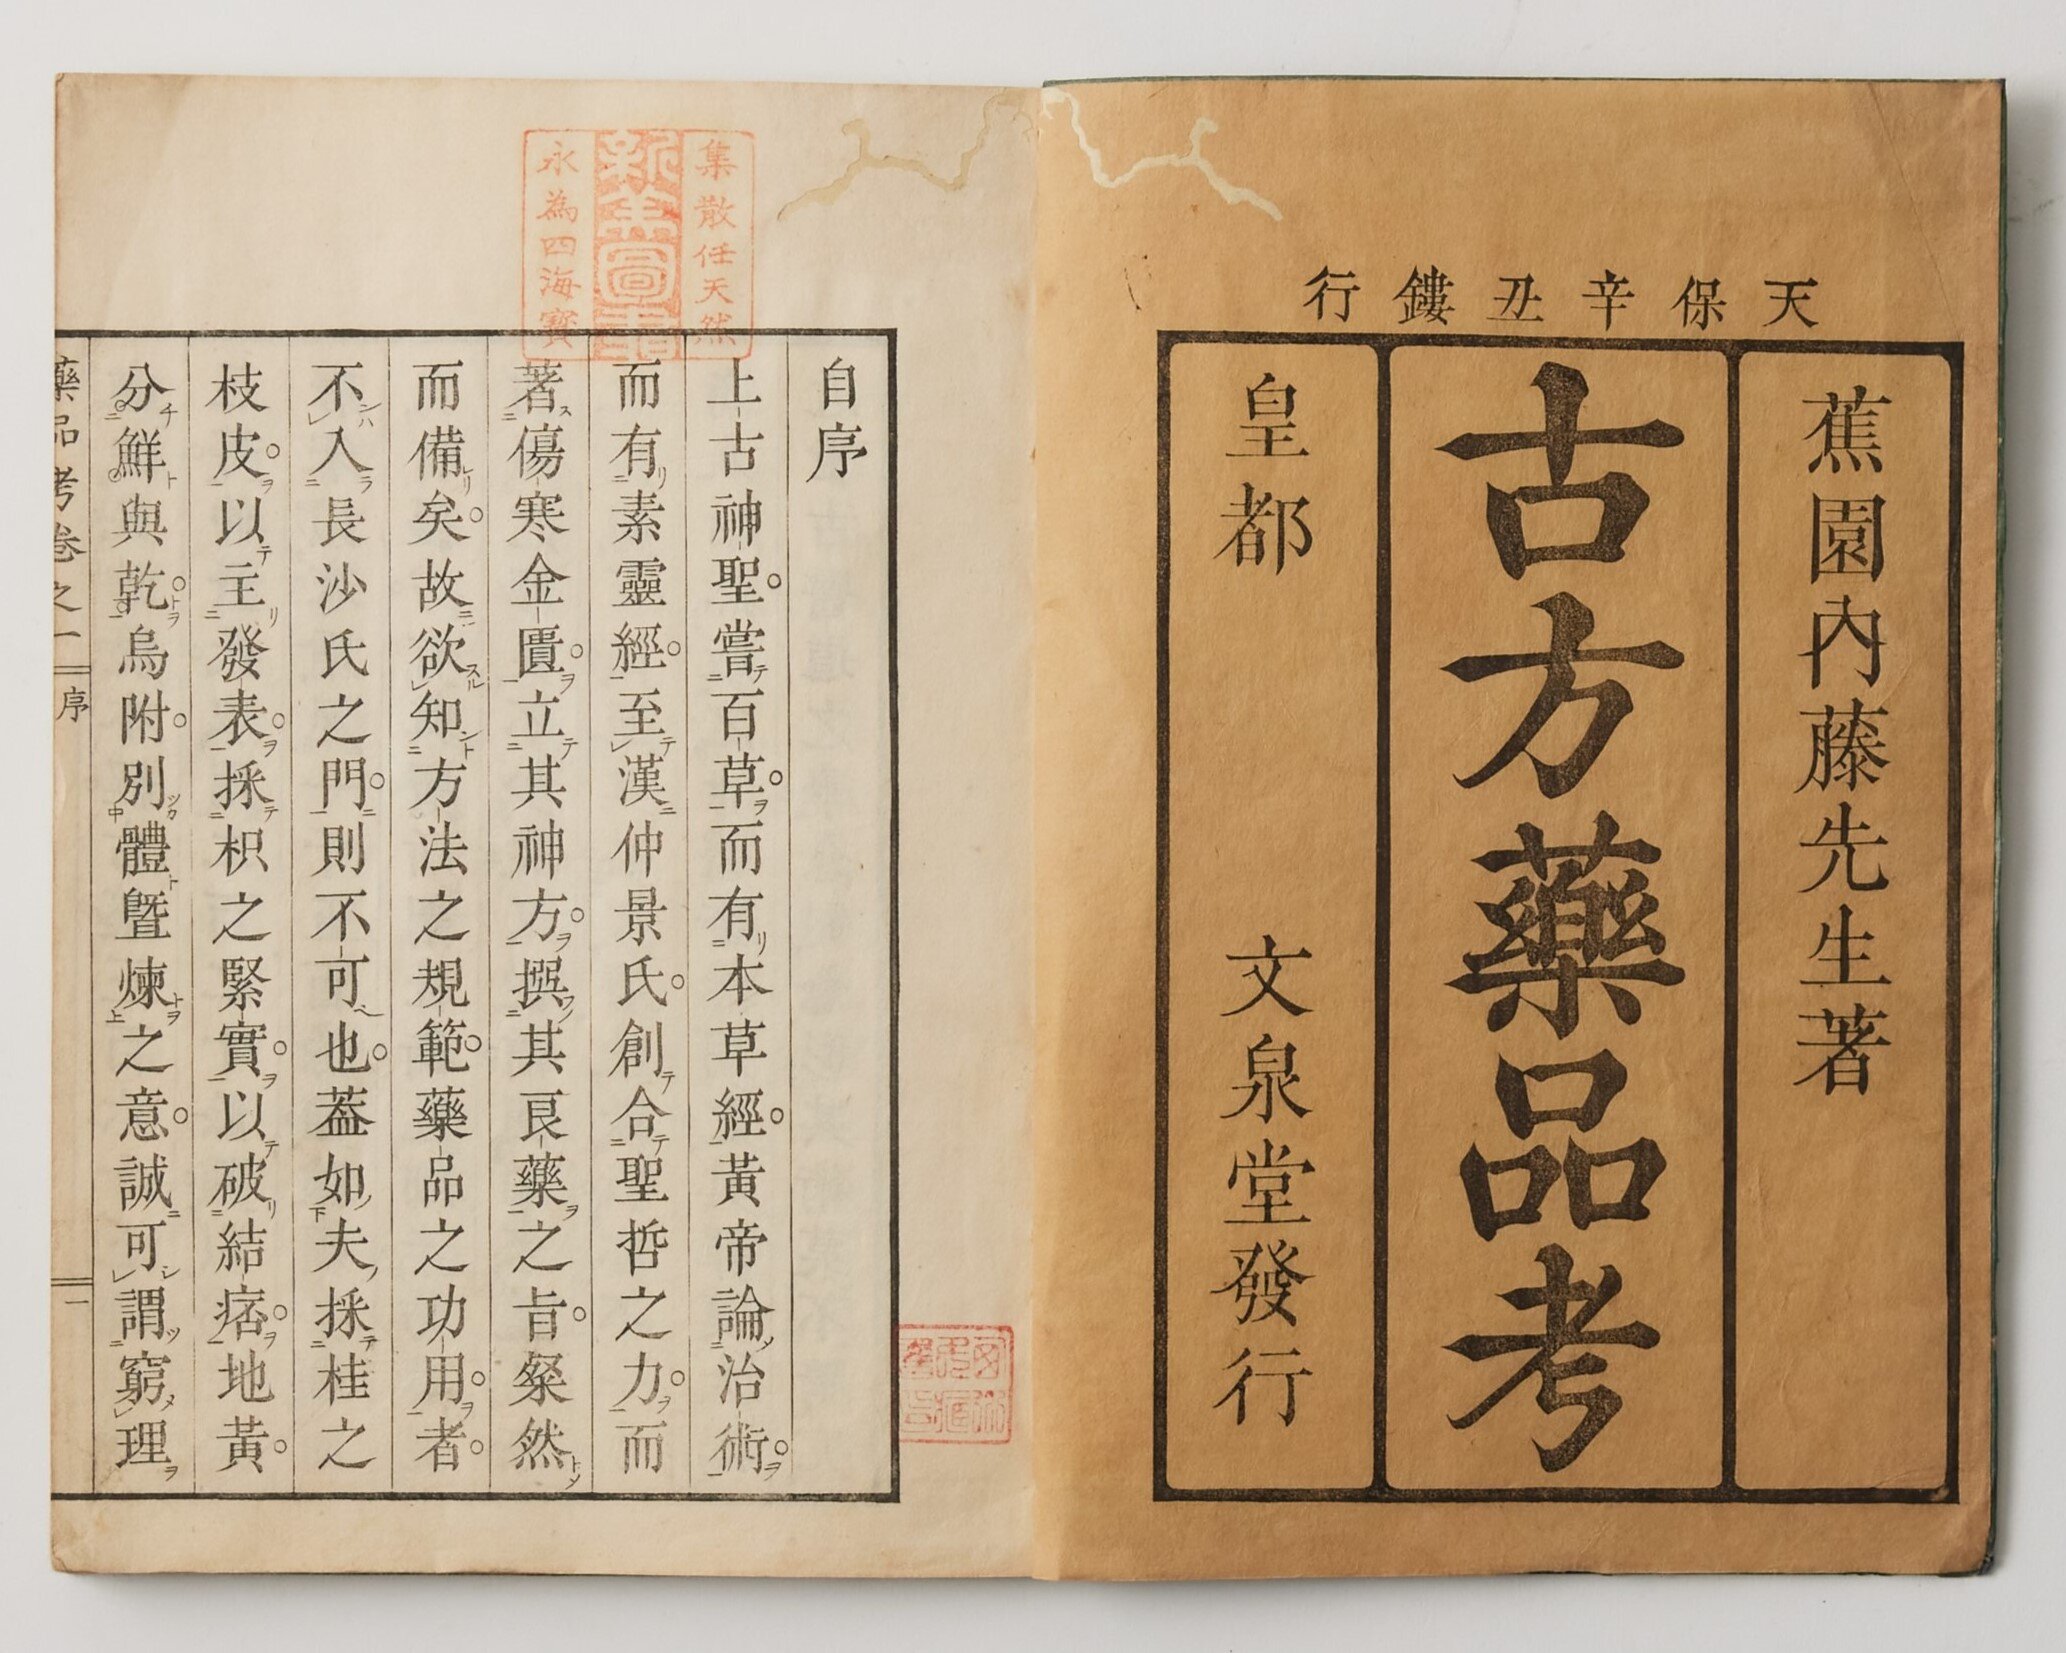 天保辛丑鏤行
蕉園内藤先生著
古方藥品考
皇都 文泉堂發行
集散任天然
永為四海寳
自序
上古神聖嘗百草而有本草經黃帝論治術
而有素靈經至漢仲景氏創合聖哲之力而
著傷寒金匱立其神方撰其良藥之旨粲然
而備矣故欲知方法之規範藥品之功用者
不入長沙氏之門則不可也葢如夫採桂之
枝皮以主發表採枳之緊實以破結痞地黃
分鮮與乾烏附別體曁煉之意誠可謂窮理
藥品考卷之一 序 一